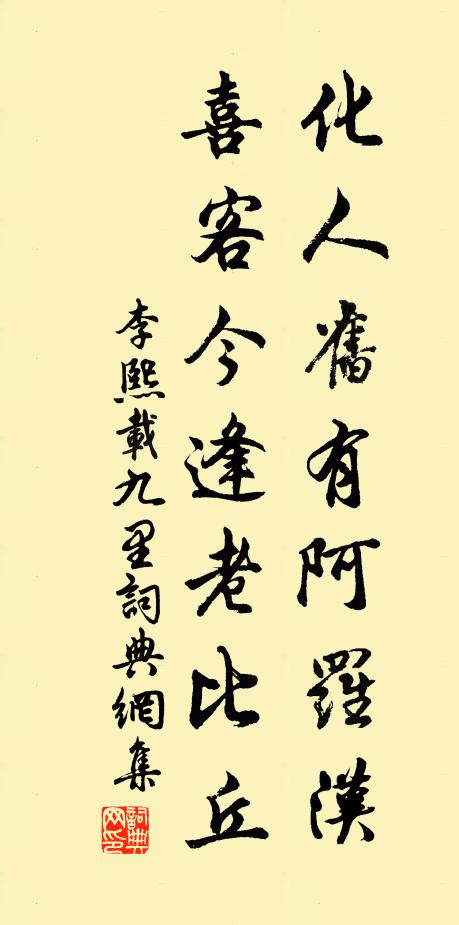 化人舊有阿羅漢
喜客今逢老比丘
李熙載九里詞典網集
詞典网印